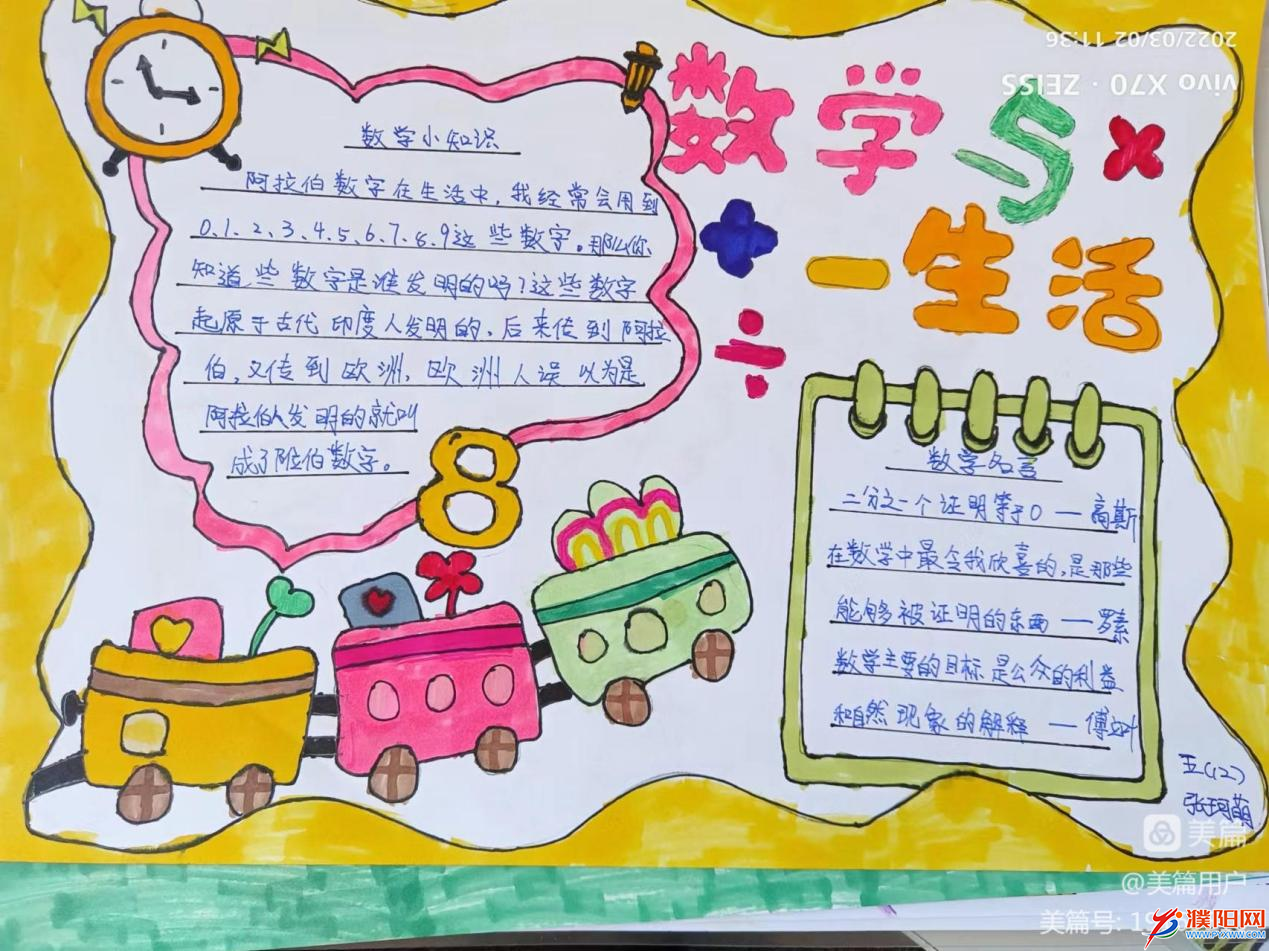 数学与
生活
数学小知识
阿拉伯数字在生活中，我经常会用到
0、1、2、3、4、5、6、7、8、9这些数字。那么你
知道些数字是谁发明的吗？这些数字
起原于古代印度人发明的，后来传到阿拉
伯，又传到欧洲，欧洲人误以为是
阿拉伯人发明的就叫
成了阿拉伯数字。
8
数学名言
二分之一个证明等于0 — 高斯
在数学中最令我欣喜的，是那些
能够被证明的东西 — 罗素
数学主要的目标是公众的利益
和自然现象的解释 — 傅立叶
五(12)
张珂萌
vivo X70 · ZEISS
2022/03/02 11:36
美篇
@美篇用户
美篇号: 19
濮阳网
WWW.PYXWW.COM